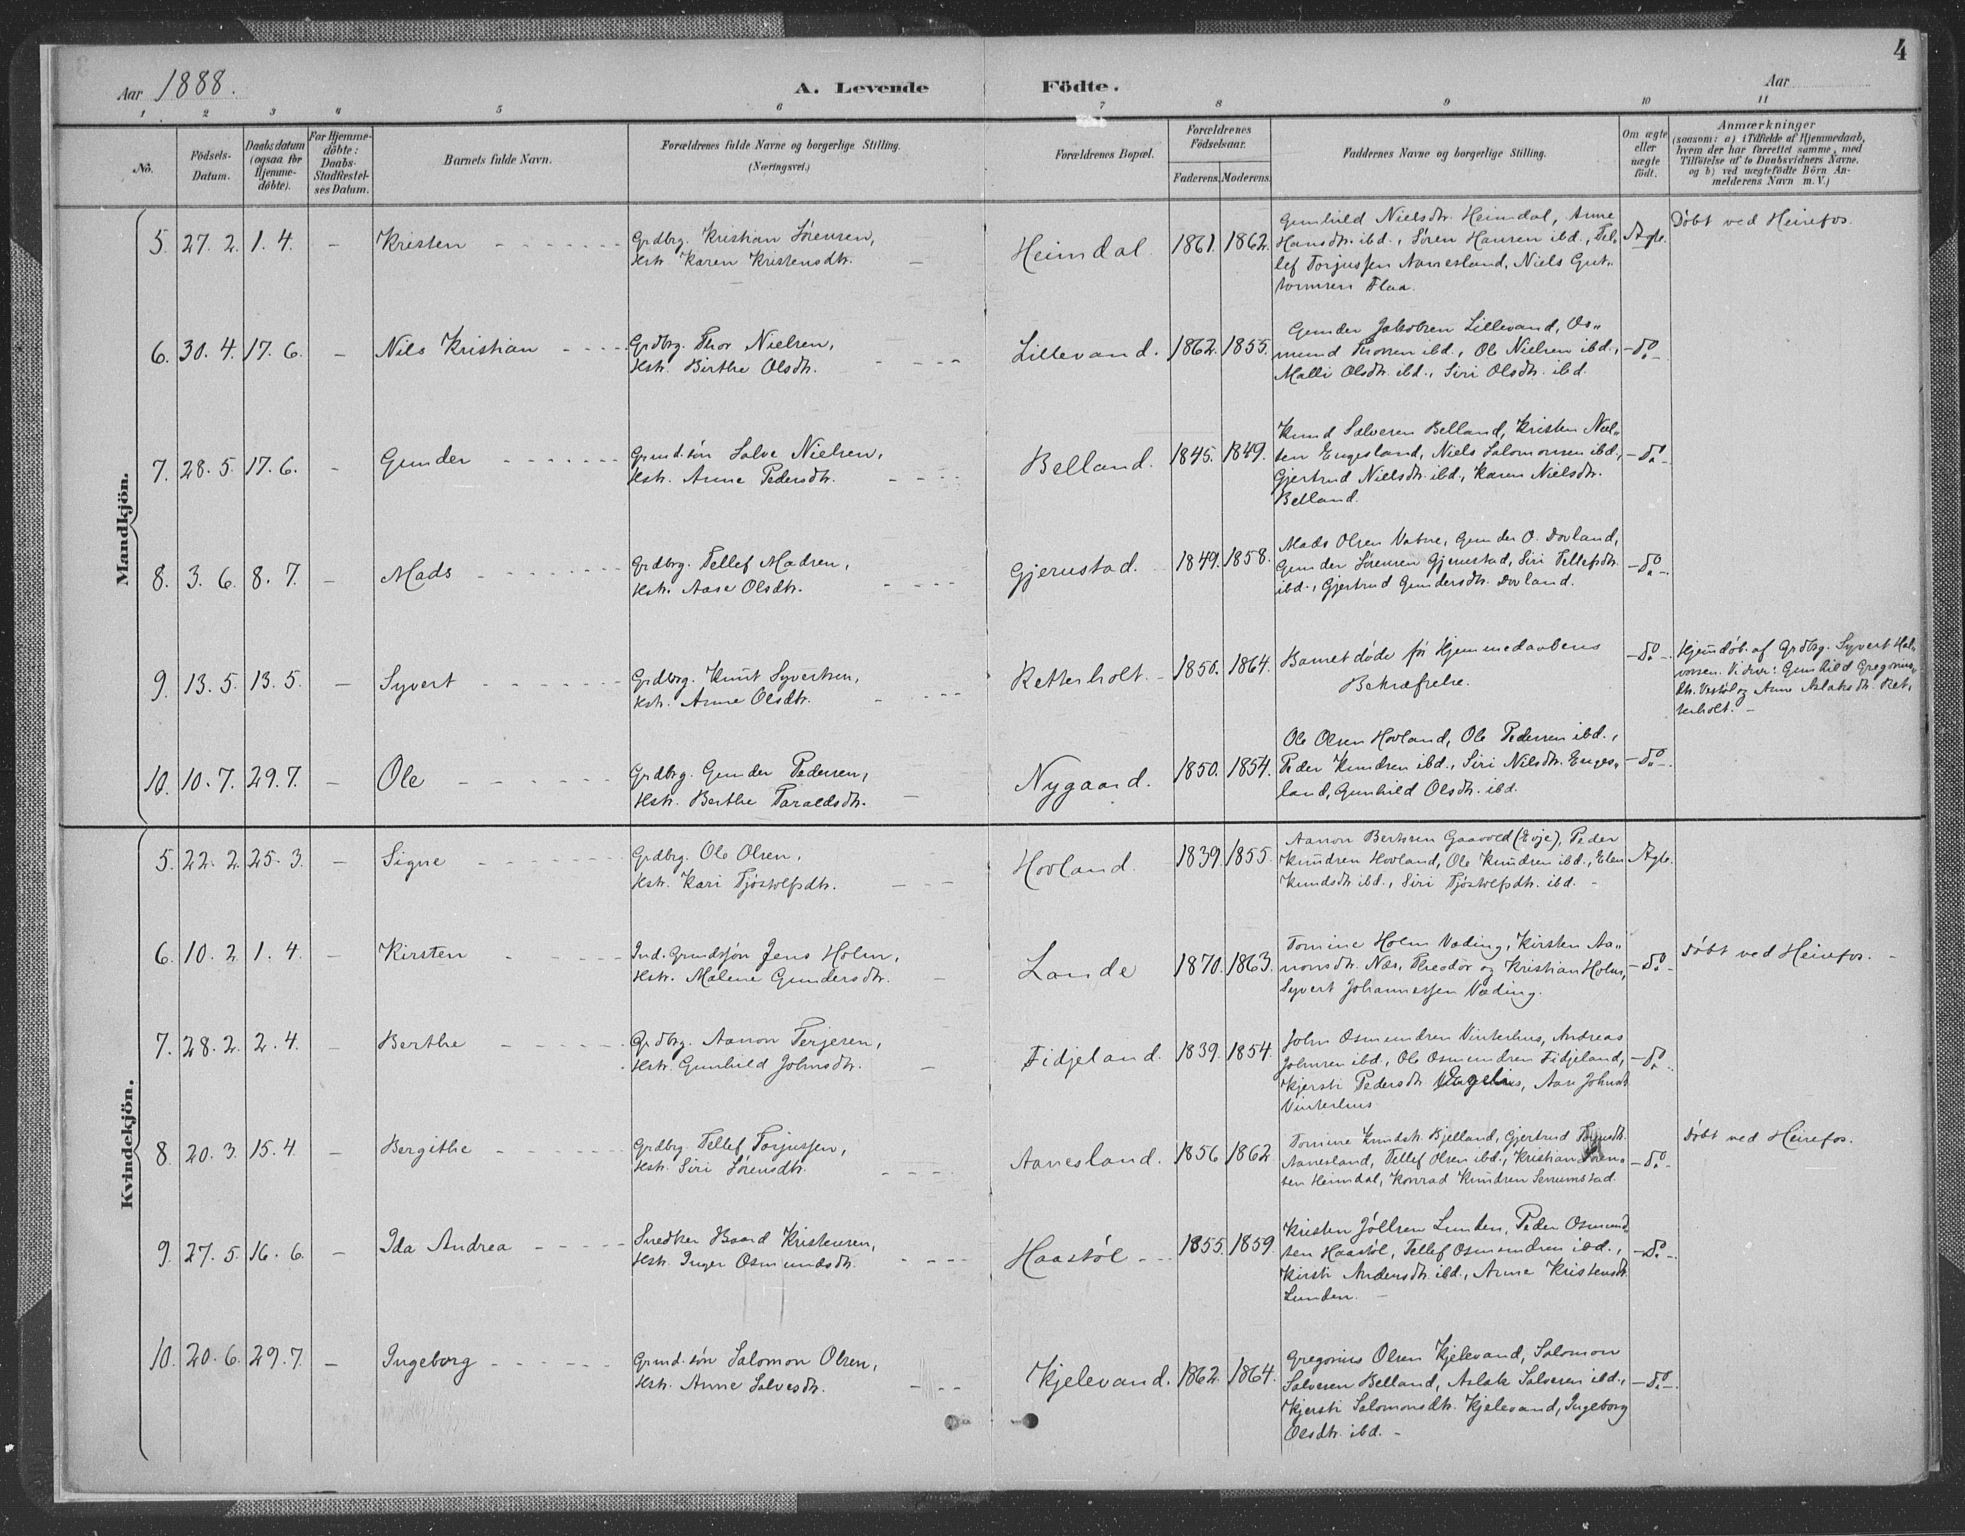 4
Aar 1888.
A. Levende Födte.
Aar
1 2 3 4 5 6 7 8 9 10 11
No.
Födsels-Datum.
Daabsdatum (ogsaa for Hjemme-döbte).
For Hjemme-döbte: Daabs-Stadfæstel-ses Datum.
Barnets fulde Navn.
Forældrenes fulde Navne og borgerlige Stilling.
(Næringsvei.)
Forældrenes Bopæl.
Forældrenes Födselsaar.
Faderens. Moderens.
Faddernes Navne og borgerlige Stilling.
Om ægte eller uægte födt.
Anmærkninger
(saasom: a) i Tilfælde af Hjemmedaab,
hvem der har forrettet samme, med
Tilföielse af to Daabsvidners Navne.
og b) ved uægtefödte Börn An-
melderens Navn m. V.)
Mandkjön.
5. 27. 2. 1. 4. – Kristen
Grdbrg. Kristian Sörensen,
Hstr. Karen Kristensdtr.
Heimdal. 1861. 1862.
Gunhild Nielsdtr. Heimdal, Anne
Hansdtr. ibd., Sören Hansen ibd., Tel-
lef Torjussen Aanesland, Niels Gut-
tormsen Flaa.
Ægte.
Döbt ved Heirefos.
6. 30. 4. 17. 6. – Nils Kristian
Grdbrg. Thor Nielsen,
Hstr. Birthe Olsdtr.
Lillevand. 1862. 1855.
Gunder Jakobsen Lillevand, Os-
mund Thorsen ibd., Ole Nielsen ibd.,
Malli Olsdtr. ibd., Siri Olsdtr. ibd.
– do –
7. 28. 5. 17. 6. – Gunder
Grmd.sön Salve Nielsen,
Hstr. Anne Pedersdtr.
Belland. 1845. 1849.
Knud Salvesen Belland, Kristen Niel-
sen Engesland, Niels Salomonsen ibd.,
Gjertrud Nielsdtr. ibd., Karen Nielsdtr.
Belland.
– do –
8. 3. 6. 8. 7. – Mads
Grdbrg. Tellef Madsen,
Hstr. Aase Olsdtr.
Gjerustad. 1849. 1858.
Mads Olsen Vatne, Gunder O. Dovland,
Gunder Sörensen Gjerustad, Siri Tellefsdtr.
ibd., Gjertrud Gundersdtr. Dovland.
– do –
9. 13. 5. 13. 5. – Syvert
Grdbrg. Knut Syvertsen,
Hstr. Anne Olsdtr.
Retterholt. 1850. 1864.
Barnet döde för Hjemmedaabens
Bekræftelse.
– do –
Hjemdöbt af Grdbrg. Syvert Hal-
vorsen. Vidner: Gunhild Gregorius-
dtr. Vestöl og Anne Aslaksdtr. Ret-
terholt. –
10. 10. 7. 29. 7. – Ole
Grdbrg. Gunder Pedersen,
Hstr. Berthe Taraldsdtr.
Nygaard. 1850. 1854.
Ole Olsen Hovland, Ole Pedersen ibd.,
Peder Knudsen ibd., Siri Nilsdtr. Enges-
land, Gunhild Olsdtr. ibd.
– do –
Kvindekjön.
5. 22. 2. 25. 3. – Signe
Grdbrg. Ole Olsen,
Hstr. Kari Tjöstolfsdtr.
Hovland. 1839. 1855.
Aanon Bertsen Gaasold (Evje), Peder
Knudsen Hovland, Ole Knudsen ibd., Elen
Knudsdtr. ibd., Siri Tjöstolfsdtr. ibd. –
Ægte.
6. 10. 2. 1. 4. – Kirsten
Ind. Grmdsön Jens Holm,
Hstr. Malene Gundersdtr.
Lande 1870. 1863.
Tomine Holm Væding, Kirsten Aa-
nonsdtr. Næs, Theodor og Kristian Holm,
Syvert Johannessen Væding.
– do –
Döbt ved Heirefos. –
7. 28. 2. 2. 4. – Berthe
Grdbrg. Aanon Terjesen,
Hstr. Gunhild Johnsdtr.
Fidjeland. 1839. 1854.
John Osmundsen Vinterhus, Andreas
Johnsen ibd., Ole Osmundsen Fidjeland,
Kjersti Pedersdtr. Aase Johnsdtr.
Vinterhus
– do –
8. 20. 3. 15. 4. – Bergithe
Grdbrg. Tellef Torjussen,
Hstr. Siri Sörensdtr.
Aanesland. 1856 1862
Tomine Knudsdtr. Bjelland, Gjertrud Torjusdtr.
Aanesland, Tellef Olsen ibd., Kristian Sören-
sen Heimdal, Konrad Knudsen Senumstad.
– do –
Döbt ved Heirefos.
9. 27. 5. 16. 6. – Ida Andrea
Snedker Baard Kristensen,
Hstr. Inger Osmundsdtr.
Haastöl 1855. 1859.
Kristen Jöllsen Lunden, Peder Osmund-
sen Haastöl, Tellef Osmundsen ibd.,
Kirsti Andersdtr. ibd., Anne Kristensdtr.
Lunden. –
– do –
10. 20. 6. 29. 7. – Ingeborg
Grmd.sön Salomon Olsen,
Hstr. Anne Salvesdtr.
Kjelevand. 1862. 1864.
Gregorius Olsen Kjelevand, Salomon
Salvesen Belland, Aslak Salvesen ibd.,
Kjersti Salomonsdtr. Kjelevand, Ingeborg
Olsdtr. ibd. –
– do –